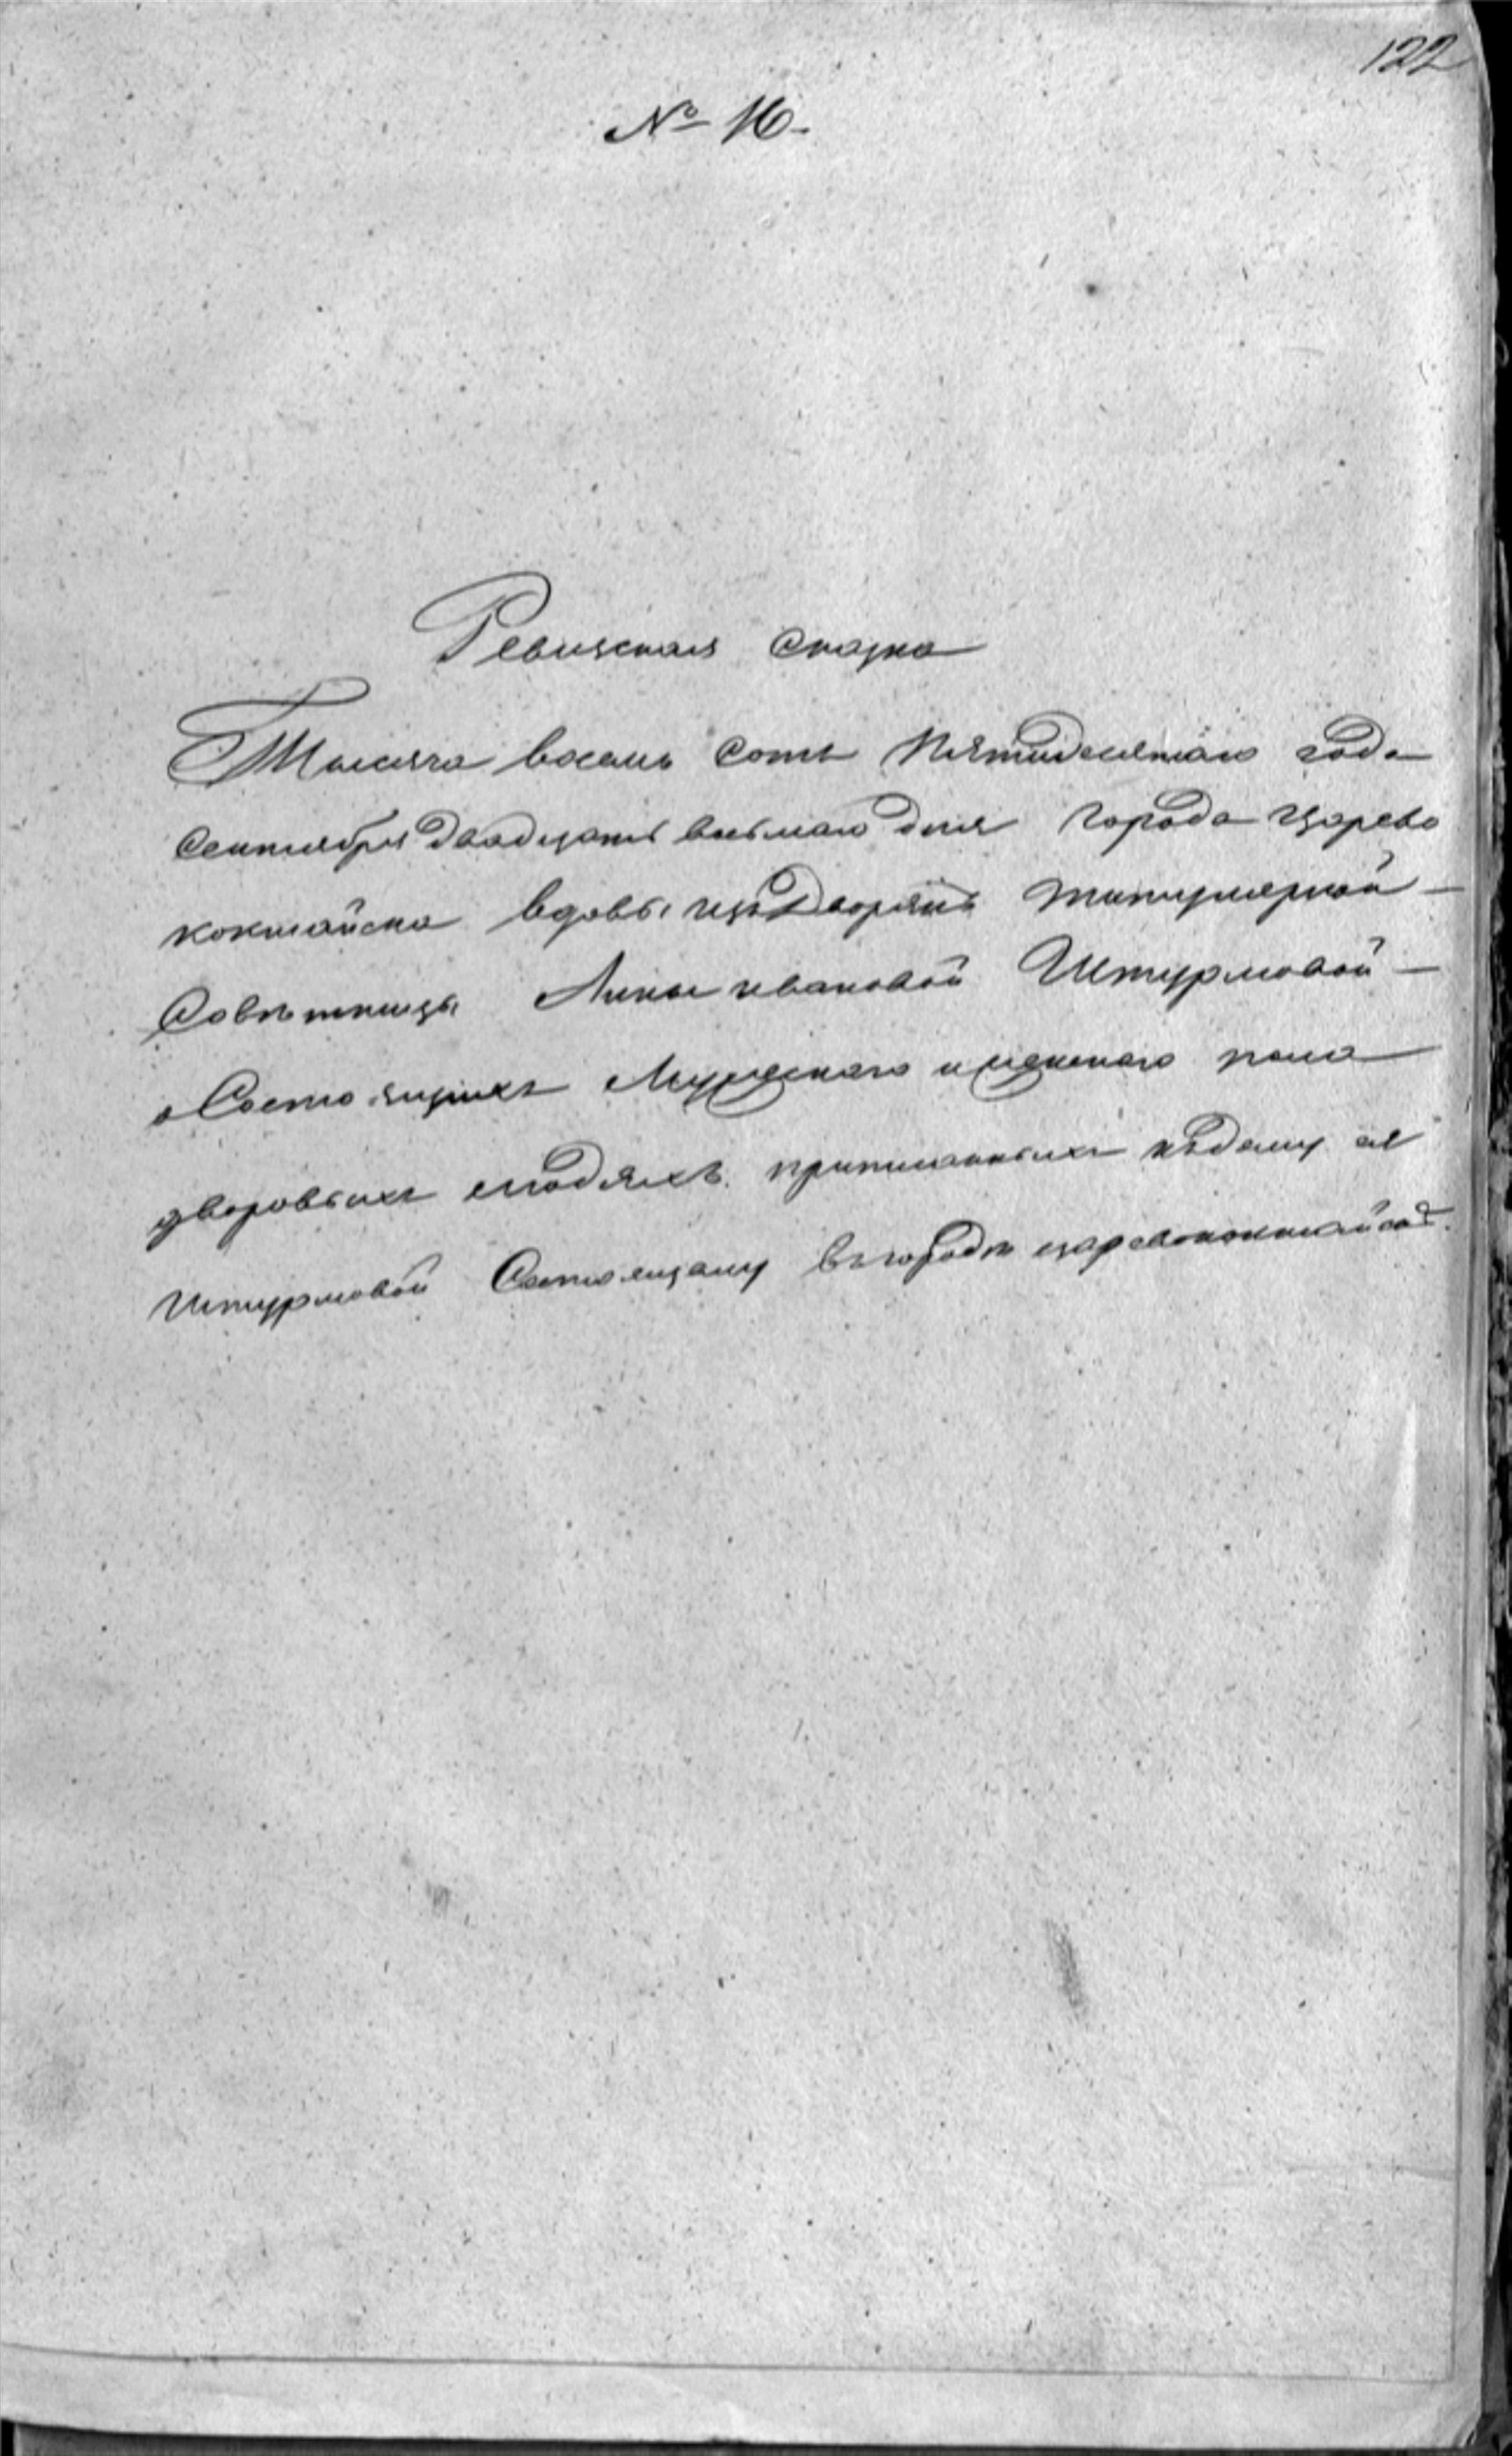 122
№ 16.
Ревизская сказка
Тысяча восемь сотъ Пятидесятаго года
Сентября двадцать восьмаго дня города Царево
кокшайска вдовы изъ Дворянъ титулярной
Совѣтницы Анны ивановой Штурмовой
о Состоящихъ Мужескаго и женскаго пола
дворовыхъ людяхъ приписанныхъ къ дому ея
Штурмовой Состоящему въ городѣ царевококшайскѣ.